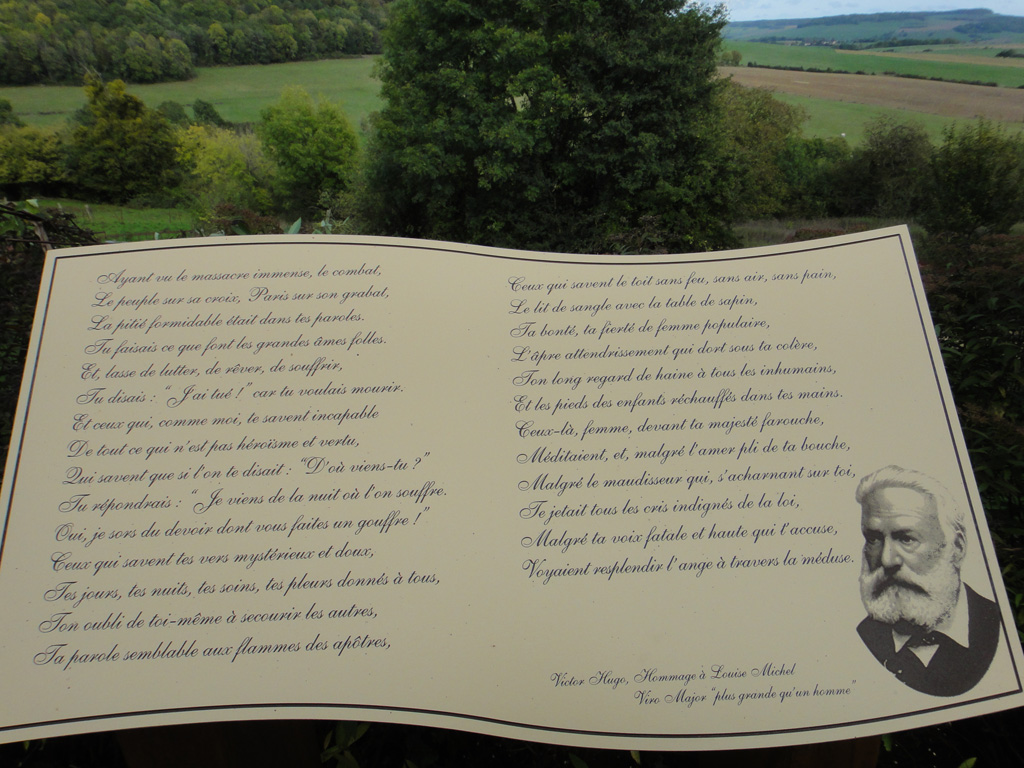 Ayant vu le massacre immense, le combat,
Le peuple sur sa croix, Paris sur son grabat,
La pitié formidable était dans tes paroles.
Tu faisais ce que font les grandes âmes folles.
Et, lasse de lutter, de rêver, de souffrir,
Tu disais : "J'ai tué !" car tu voulais mourir.
Et ceux qui, comme moi, te savent incapable
De tout ce qui n'est pas héroïsme et vertu,
Qui savent que si l'on te disait : "D'où viens-tu ?"
Tu répondrais : "Je viens de la nuit où l'on souffre.
Oui, je sors du devoir dont vous faites un gouffre !"
Ceux qui savent tes vers mystérieux et doux,
Tes jours, tes nuits, tes soins, tes pleurs donnés à tous,
Ton oubli de toi-même à secourir les autres,
Ta parole semblable aux flammes des apôtres,
Ceux qui savent le toit sans feu, sans air, sans pain,
Le lit de sangle avec la table de sapin,
Ta bonté, ta fierté de femme populaire,
L'âpre attendrissement qui dort sous ta colère,
Ton long regard de haine à tous les inhumains,
Et les pieds des enfants réchauffés dans tes mains.
Ceux-là, femme, devant ta majesté farouche,
Méditaient, et, malgré l'amer pli de ta bouche,
Malgré le maudisseur qui, s'acharnant sur toi,
Te jetait tous les cris indignés de la loi,
Malgré ta voix fatale et haute qui t'accuse,
Voyaient resplendir l'ange à travers la méduse.
Victor Hugo, Hommage à Louise Michel
Viro Major "plus grande qu'un homme"